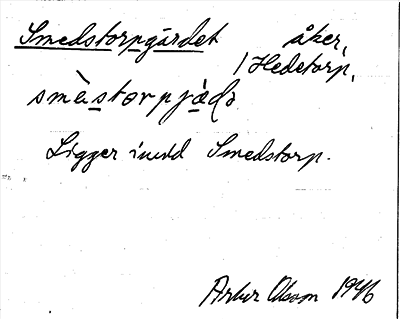 Smedstorpgärdet åker,
/ Hedetorp,
smèstorpjæḍə
Ligger invid Smedstorp.
Olsson 1946